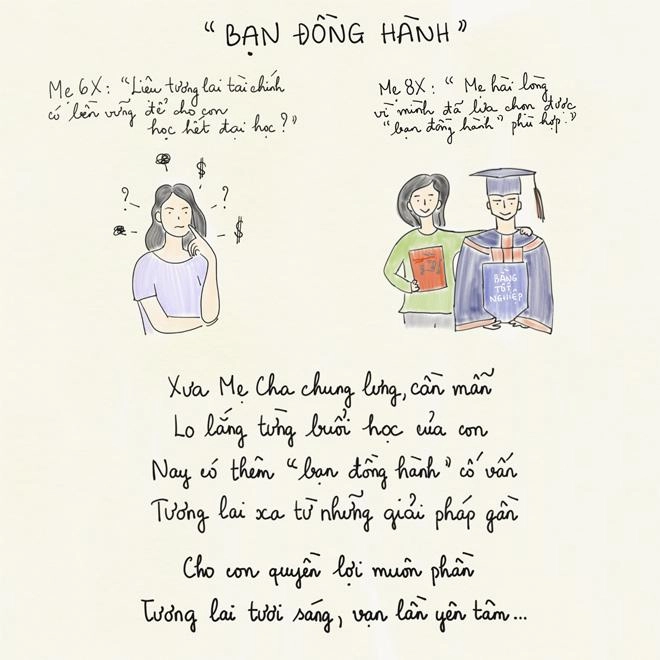 “BẠN ĐỒNG HÀNH”
Mẹ 6X: “Liệu tương lai tài chính
có bền vững để cho con
học hết đại học?”
Mẹ 8X: “ Mẹ hài lòng
vì mình đã lựa chọn được
“bạn đồng hành” phù hợp.”
?
$
?
$
BẰNG
TỐT
NGHIỆP
Xưa Mẹ Cha chung lưng, cần mẫn
Lo lắng từng buổi học của con
Nay có thêm “bạn đồng hành” cố vấn
Tương lai xa từ những giải pháp gần
Cho con quyền lợi muôn phần
Tương lai tươi sáng, vạn lần yên tâm...